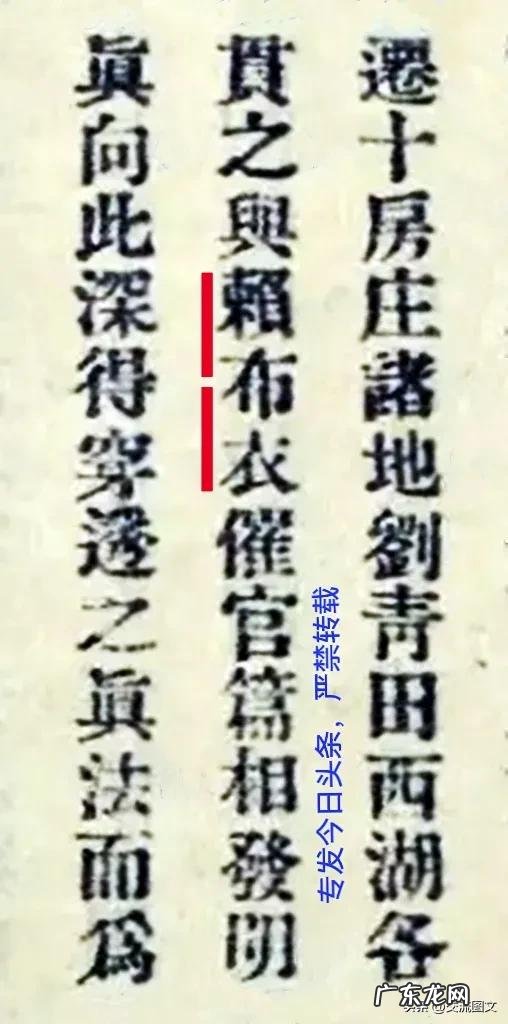 遷十房庄諸地劉青田西湖各
貫之與賴布衣催官篇相發明
眞向此深得穿透之眞法而爲
专发今日头条，严禁转载
广东龙网